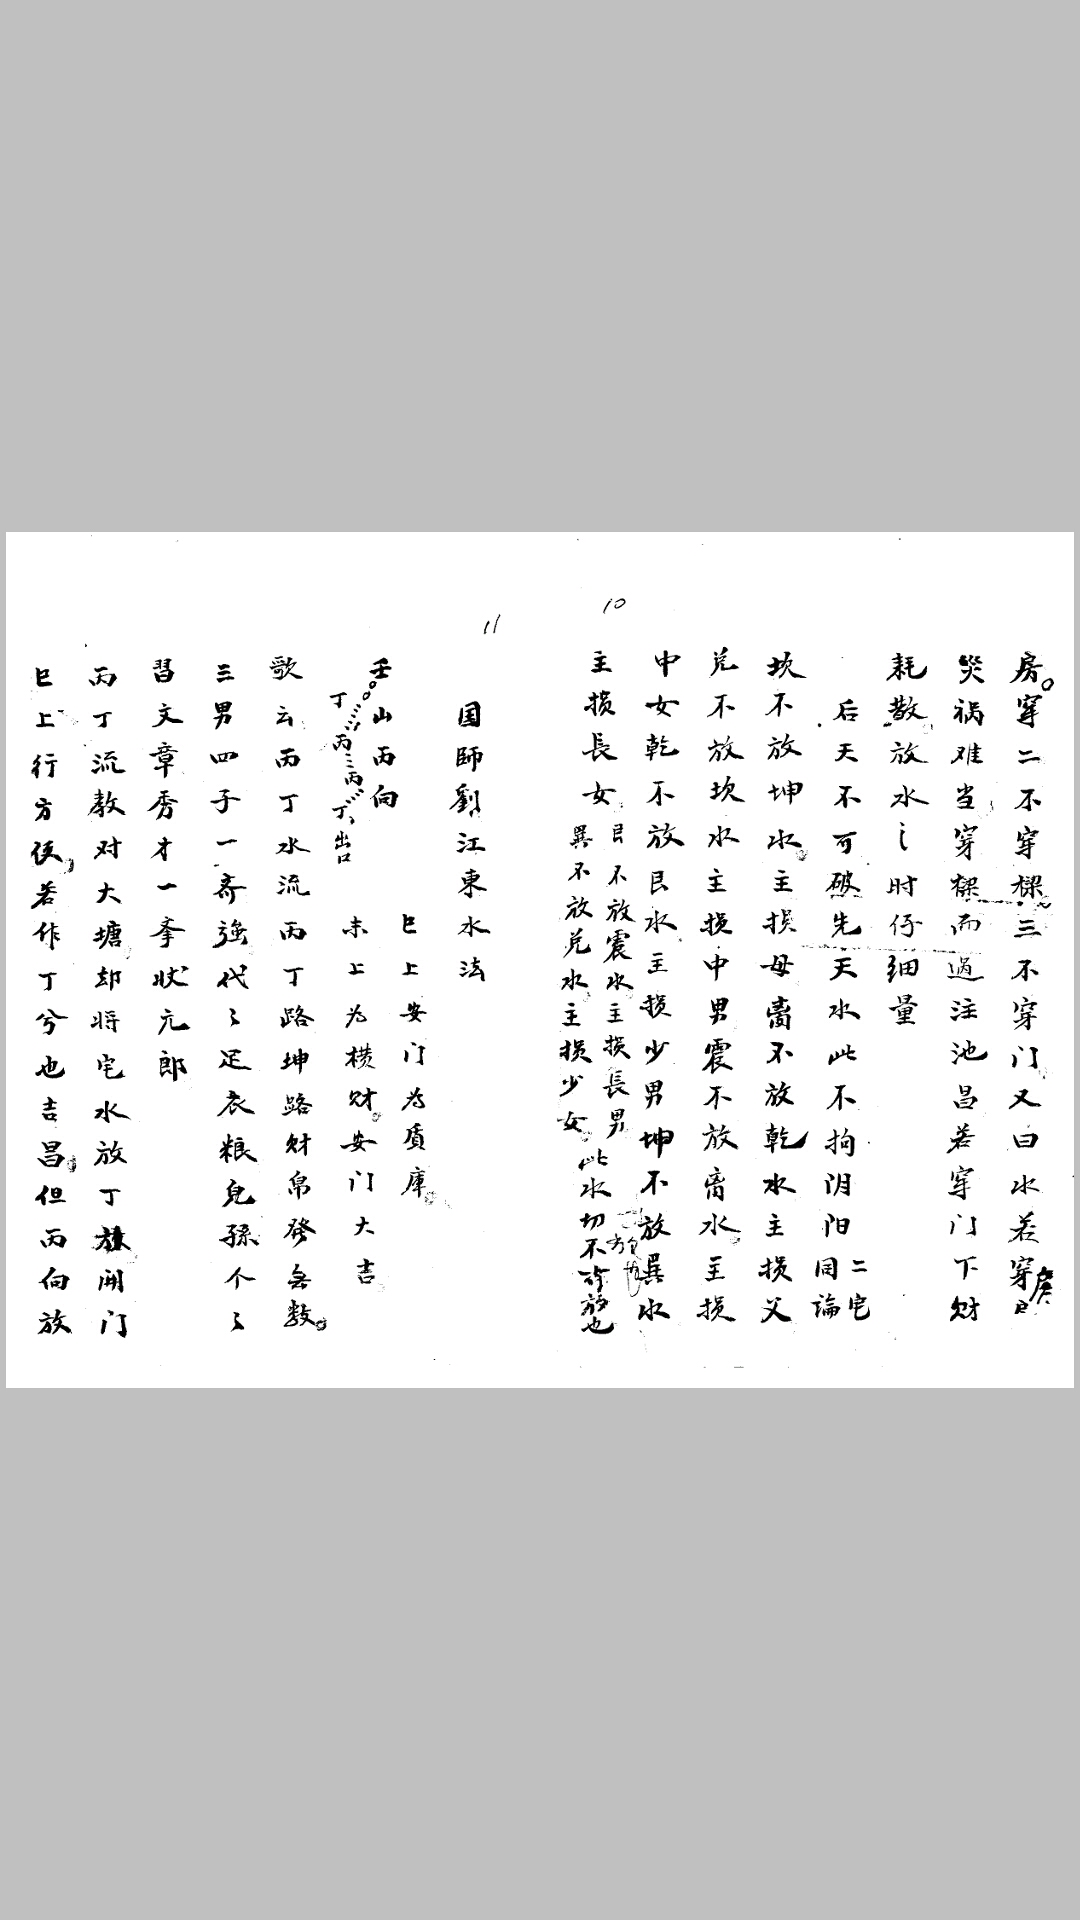 10
房穿二不穿樑三不穿门又曰水若穿房已
災祸难当穿樑而過注池昌若穿门下财
耗散放水之时仔细量
后天不可破先天水此不拘阴阳二宅同論
坎不放坤水主损母离不放乾水主损父
兑不放坎水主损中男震不放离水主损
中女乾不放艮水主损少男坤不放巽水
主损長女艮不放震水主损長男
巽不放兑水主损少女此水切不可放也
11
国師劉江東水法
壬山丙向
丁丙三丙丁出口
巳上安门为质庫
未上为横财安门大吉
歌云丙丁水流丙丁路坤路财帛發无数
三男四子一齐強代々足衣粮兒孫个々
習文章秀才一举状元郎
丙丁流教对大塘却将宅水放丁開门
巳上行方便若作丁兮也吉昌但丙向放